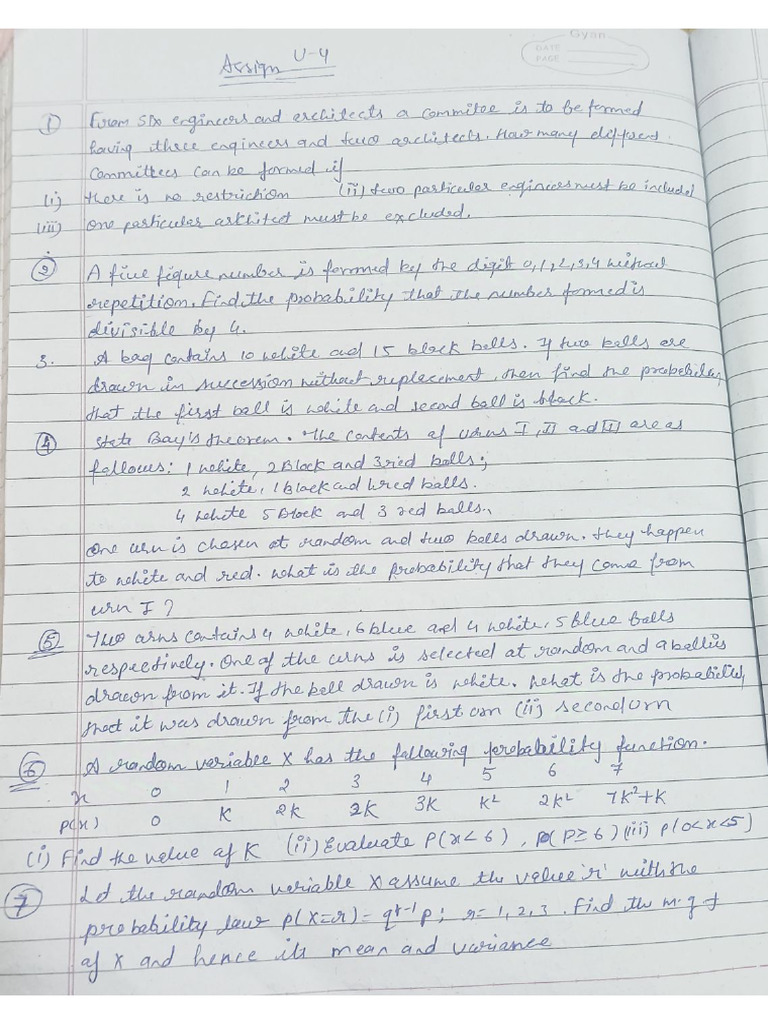 Gyan
DATE
PAGE
Assign U-4
① From six engineers and architects a commitee is to be formed
having three engineers and two architects. How many different
Committees can be formed if
(i) there is no restriction (ii) two particular engineers must be included
(iii) one particular arkitect must be excluded.
② A five figure number is formed by the digit 0,1,2,3,4 without
repetition. Find, the probability that the number formed is
divisible by 4.
3. A bag contains 10 white and 15 black balls. If two balls are
drawn in succession without replacement, then find the probability
that the first ball is white and second ball is black.
④ State Bay's theorem. The contents of urns I, II and III are as
follows: 1 white, 2 Black and 3 red balls;
2 white, 1 black and red balls.
4 white 5 Black and 3 red balls.
One urn is chosen at random and two balls drawn. they happen
to white and red. what is the probability that they come from
urn I?
⑤ Two arns contains 4 white, 6 blue and 4 white, 5 blue balls
respectively. One of the urns is selected at random and a ball is
drawn from it. If the ball drawn is white. what is the probability
that it was drawn from the (i) first urn (ii) second urn
⑥ A random variable X has the following probability function.
x 0 1 2 3 4 5 6 7
p(x) 0 K 2K 2K 3K K² 2K² 7K²+K
(i) Find the value of K (ii) Evaluate P(x<6), P(P≥6) (iii) P(0<x<5)
⑦ Let the random variable X assume the value 'r' with the
probability law p(X=r) = q^(r-1)p; r=1,2,3. Find the m.g.f
of X and hence its mean and variance